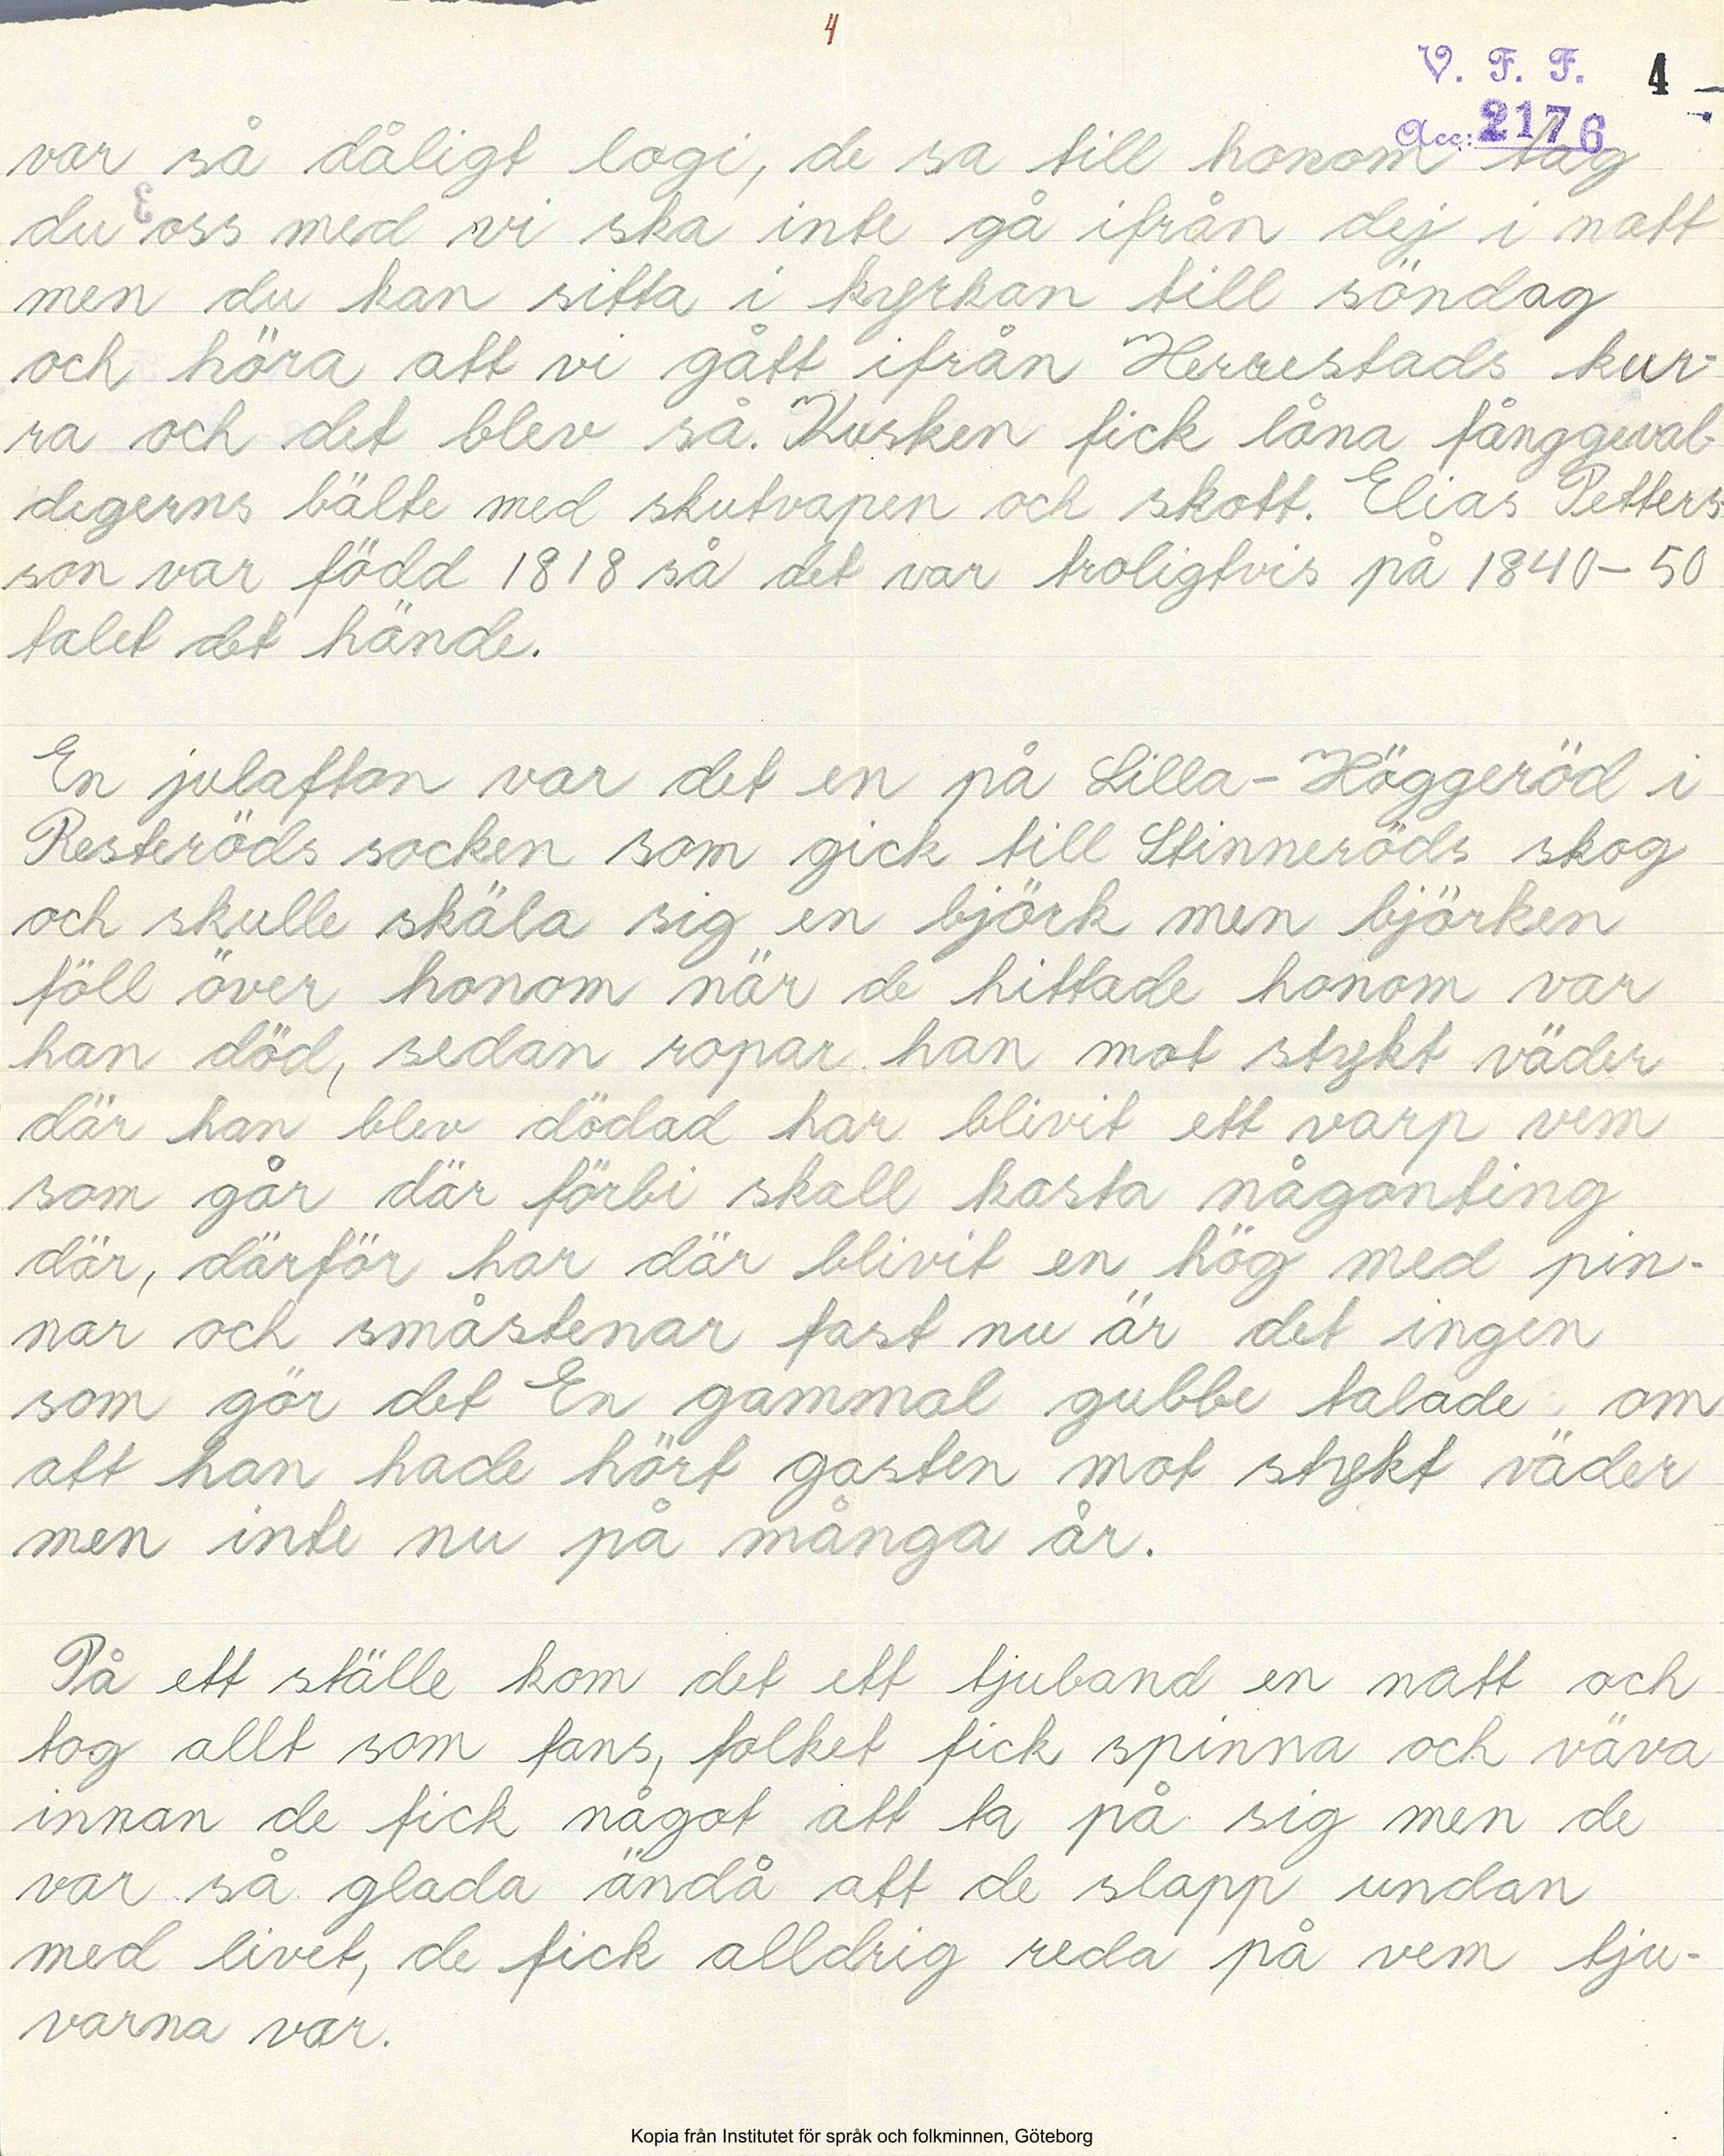 4
V. F. F. 4
Acc: 2176
var så dåligt logi, de sa till honom tag
du oss med vi ska inte gå ifrån dej i natt
men du kan sitta i kyrkan till söndag
och höra att vi gått ifrån Herrestads kur-
ra och det blev så. Kusken fick låna fånggeval-
degerns bälte med skutvapen och skott. Elias Petters-
son var född 1818 så det var troligtvis på 1840-50
talet det hände.
En julafton var det en på Lilla-Höggeröd i
Resteröds socken som gick till Stinneröds skog
och skulle skäla sig en björk men björken
föll över honom när de hittade honom var
han död, sedan ropar han mot stykt väder
där han blev dödad har blivit ett varp vem
som går där förbi skall kasta någonting
där, därför har där blivit en hög med pin-
nar och småstenar fast nu är det ingen
som gör det En gammal gubbe talade om
att han hade hört gasten mot stykt väder
men inte nu på många år.
På ett ställe kom det ett tjuband en natt och
tog allt som fans, folket fick spinna och väva
innan de fick något att ta på sig men de
var så glada ändå att de slapp undan
med livet, de fick alldrig reda på vem tju-
varna var.
Kopia från Institutet för språk och folkminnen, Göteborg